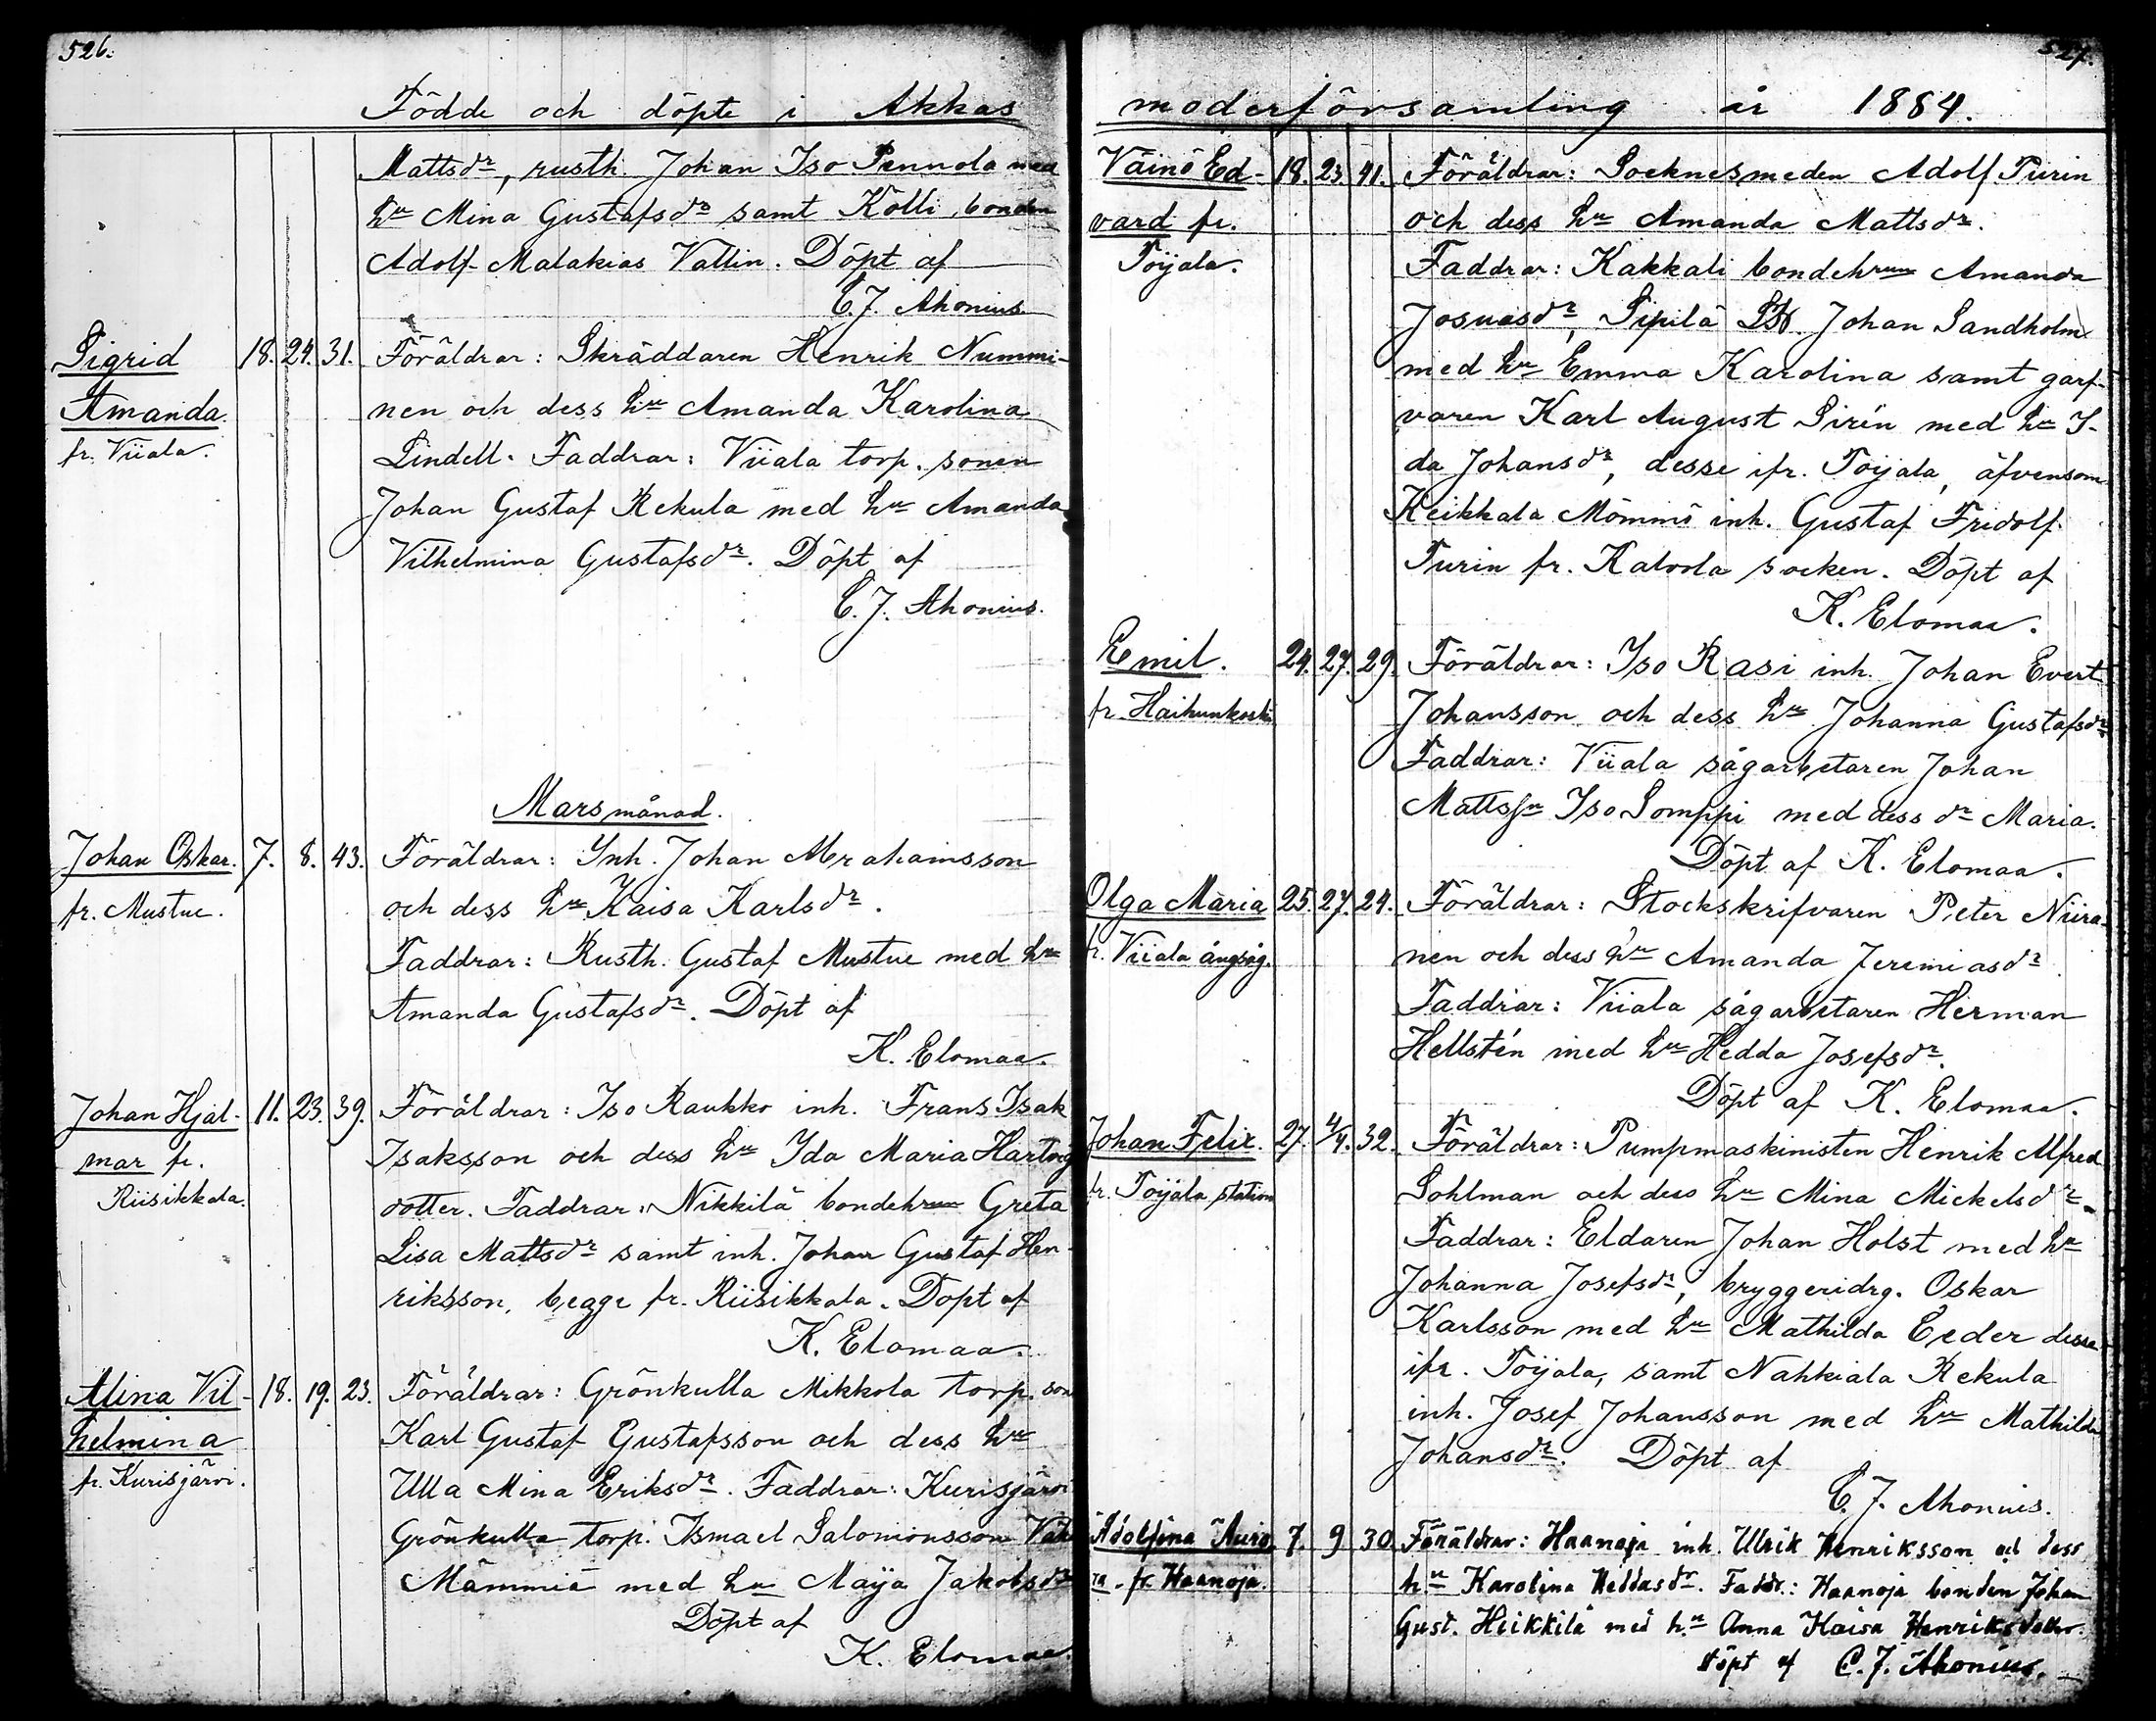 526.
Födde och döpte i Akkas
Mattsdr, rusth. Johan Iso Pennola med
hu Mina Gustafsdr samt Kölli bonden
Adolf Malakias Vallin. Döpt af
C. J. Ahonius.
Sigrid 18. 24. 31. Föräldrar: Skräddaren Henrik Nummi-
Amanda nen och dess hu Amanda Karolina
fr. Viiala. Lindell. Faddrar: Viiala torp. sonen
Johan Gustaf Rekula med hu Amanda
Vilhelmina Gustafsdr. Döpt af
C. J. Ahonius.
Marsmånad.
Johan Oskar. 7. 8. 43. Föräldrar: Inh. Johan Abrahamsson
fr. Mustue. och dess hu Kaisa Karlsdr.
Faddrar: Rusth. Gustaf Mustue med hu
Amanda Gustafsdr. Döpt af
K. Elomaa.
Johan Hjal- 11. 23. 39. Föräldrar: Iso Raukko inh. Frans Isak
mar fr. Isaksson och dess hu Ida Maria Hartvig
Riisikkala. dotter. Faddrar: Nikkilä bondehrun Greta
Lisa Mattsdr samt inh. Johan Gustaf Hen-
riksson, begge fr. Riisikkala. Döpt af
K. Elomaa.
Alina Vil- 18. 19. 23. Föräldrar: Grönkulla Mikkola torp. son
helmina Karl Gustaf Gustafsson och dess hu
fr. Kurisjärvi. Ulla Mina Eriksdr. Faddrar: Kurisjärvi
Grönkulla torp. Ismael Salomonsson
med hu Maija Jakobsdr
Döpt af
K. Elomaa.
527.
moderförsamling år 1884.
Väinö Ed- 18. 23. 41. Föräldrar: Socknesmeden Adolf Turin
vard fr. och dess hu Amanda Mattsdr.
Toijala. Faddrar: Kakkali bondehrun Amanda
Josuasdr, Sipilä Johan Sandholm
med hu Emma Karolina samt garf-
varen Karl August Sirén med hu I-
da Johansdr, desse ifr. Toijala, äfvensom
Keikkala Mömmö inh. Gustaf Fridolf
Turin fr. Kalvola socken. Döpt af
K. Elomaa.
Emil. 24. 27. 29. Föräldrar: Iso Rasi inh. Johan Evert
fr. Haihunkoski Johansson och dess hu Johanna Gustafsdr
Faddrar: Viiala sågarbetaren Johan
Mattssn Iso Somppi med dess dr Maria.
Döpt af K. Elomaa.
Olga Maria 25. 27. 24. Föräldrar: Stockskrifvaren Peter Niira-
fr. Viiala ångsåg. nen och dess hu Amanda Jeremiasdr
Faddrar: Viiala sågarbetaren Herman
Hellstén med hu Hedda Josefsdr.
Döpt af K. Elomaa.
Johan Felix. 27. 4/4. 32. Föräldrar: Pumpmaskinisten Henrik Alfred
fr. Toijala station Sohlman och dess hu Mina Mickelsdr.
Faddrar: Eldaren Johan Holst med hu
Johanna Josefsdr, bryggeridrg. Oskar
Karlsson med hu Mathilda Ceder desse
ifr. Toijala, samt Nahkiala Rekula
inh. Josef Johansson med hu Mathilda
Johansdr. Döpt af
C. J. Ahonius.
Adolfina Auro- 7. 9 30 Föräldrar: Haanoja inh. Ulrik Henriksson och dess
ra. fr. Haanoja. hu Karolina Heddasdr. Faddr.: Haanoja bonden Johan
Gust. Heikkilä med hu Anna Kaisa Henriksdotter.
döpt af C. J. Ahonius.